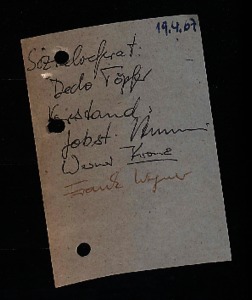 19.4.07
Sozialreferat:
Bodo Töpfer
Vorstand:
Jobst
Werner Krone
Frank Wagner